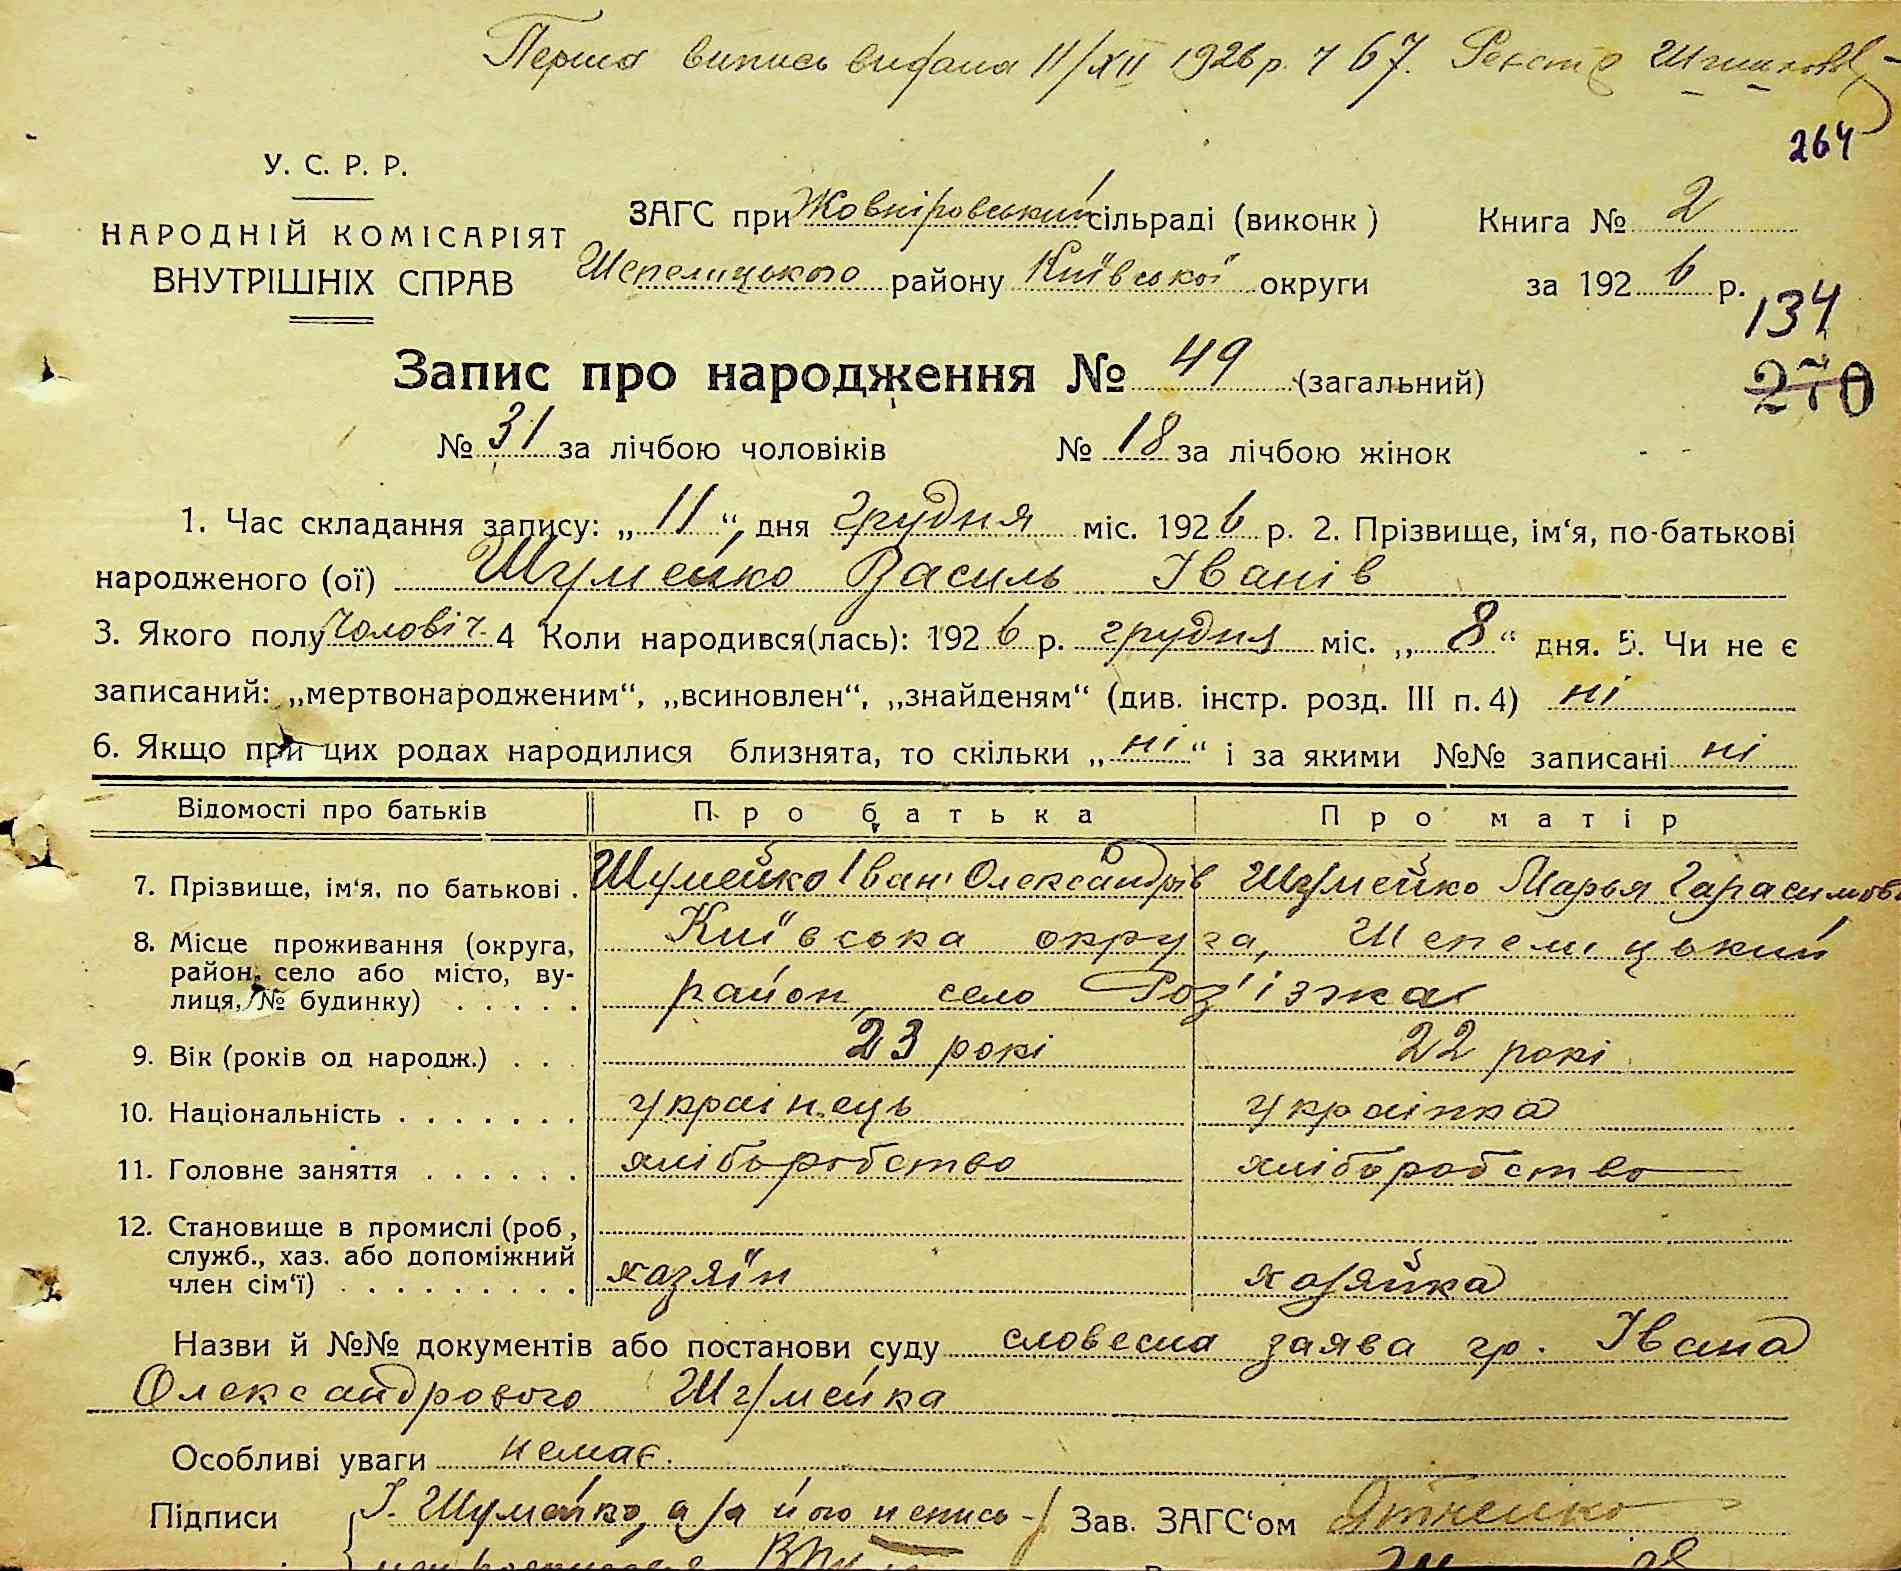 Перша випись видана 11/XII 1926 р. ч 67. Реєстр
264
У. С. Р. Р.
НАРОДНІЙ КОМІСАРІЯТ
ВНУТРІШНІХ СПРАВ
ЗАГС при Жовніровський сільраді (виконк )
Шепелицького району Київської округи
Книга № 2
за 1926 р.
134
270
Запис про народження № 49 (загальний)
№ 31 за лічбою чоловіків № 18 за лічбою жінок
1. Час складання запису: „11“ дня грудня міс. 1926 р. 2. Прізвище, ім‘я, по-батькові
народженого (ої) Шумейко Василь Іванів
3. Якого полу чоловіч. 4 Коли народився(лась): 1926 р. грудня міс. „8“ дня. 5. Чи не є
записаний: „мертвонародженим“, „всиновлен“, „знайденям“ (див. інстр. розд. III п. 4) ні
6. Якщо при цих родах народилися близнята, то скільки „ні“ і за якими №№ записані ні
Відомості про батьків Про батька Про матір
7. Прізвище, ім‘я, по батькові . Шумейко Іван Олександрів Шумейко Марья Гарасимов
8. Місце проживання (округа, Київська округа, Шепелицький
район, село або місто, ву-
лиця, № будинку) . . . . . район, село Роз'їзжа
9. Вік (років од народж.) . . . 23 рокі 22 рокі
10. Національність . . . . . . . українець українка
11. Головне заняття . . . . . . хліборобство хліборобство
12. Становище в промислі (роб ,
служб., хаз. або допоміжний
член сім‘ї) . . . . . . . . . хазяїн хозяйка
Назви й №№ документів або постанови суду словесна заява гр. Івана
Олександрового Шумейка
Особливі уваги немає.
Підписи І. Шумейко, а за його непись- Зав. ЗАГС‘ом